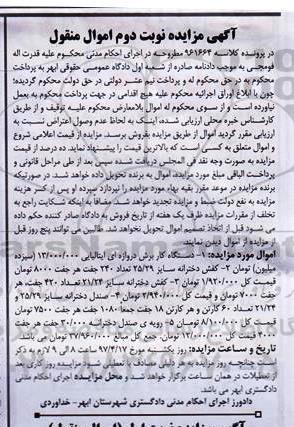 آگهی مزایده نوبت دوم اموال منقول
در پرونده کلاسه ۹۶۱۶۶۴ مطروحه در اجرای احکام مدنی محکوم علیه قدرت اله
فومجی به موجب دادنامه صادره از شعبه اول دادگاه عمومی حقوقی ابهر به پرداخت
محکوم به در حق محکوم له و پرداخت نیم عشر دولتی در حق دولت محکوم گردیده؛
چون با ابلاغ اوراق اجرائیه محکوم علیه هیچ اقدامی در جهت پرداخت محکوم به بعمل
نیاورده است و از سوی محکوم له اموال بلامعارض محکوم علیه توقیف و از طریق
کارشناس خبره محلی ارزیابی شده، اینک به لحاظ عدم وصول اعتراض نسبت به
ارزیابی مقرر گردید اموال از طریق مزایده بفروش برسد. مزایده از قیمت اعلامی شروع
و اموال متعلق به کسی است که بالاترین قیمت را پیشنهاد نماید. ده درصد از قیمت
مزایده به صورت وجه نقد فی المجلس دریافت شده سپس بعد از طی مراحل قانونی و
پرداخت الباقی مبلغ مورد مزایده، اموال به برنده تحویل داده خواهد شد. در صورتیکه
برنده مزایده در موعد مقرر بقیه بهاء مورد مزایده را نپردازد سپرده او پس از کسر هزینه
مزایده به نفع دولت ضبط و مزایده تجدید خواهد شد. مضافا به اینکه شکایت راجع به
تخلف از مقررات مزایده ظرف یک هفته از تاریخ فروش به دادگاه صادر کننده حکم داده
می شود قبل از اتخاذ تصمیم اموال تحویل نخواهد شد. طالبین می توانند پنج روز قبل
از مزایده از اموال دیدن نمایند.
اموال مورد مزایده: ۱- دستگاه کار برش دروازه ای ایتالیایی ۱۳/۰۰۰/۰۰۰ (سیزده
میلیون) تومان ۲- کفش دخترانه سایز ۲۵/۲۹ تعداد ۲۴۰ جفت هر جفت ۸۰۰۰ تومان
قیمت کل ۱/۹۲۰/۰۰۰ تومان ۳- کفش دخترانه سایز ۲۱/۲۴ تعداد ۴۲۰ جفت، هر
جفت ۷۰۰۰ تومان و قیمت کل ۲/۹۴۰/۰۰۰ تومان ۴- صندل دخترانه سایز ۲۵/۲۹ و
۲۱/۲۴ تعداد ۶۰ کارتن و هر کارتن ۱۸ جفت جمعا ۱۰۸۰ جفت هر جفت ۷۵۰۰ تومان
قیمت کل ۸/۱۰۰/۰۰۰ تومان ۵- رویه ی صندل دخترانه ۳۰۰۰ جفت هر جفت
۴۰۰۰ تومان قیمت کل ۱۲/۰۰۰/۰۰۰ تومان. جمع کل مبلغ ۳۷/۹۶۰/۰۰۰ تومان می باشد.
تاریخ و ساعت مزایده: روز یکشنبه مورخ ۹۷/۴/۱۷ ساعت ۸ الی ۹ لازم به ذکر
است چنانچه روز مزایده به هر دلیلی مصادف با تعطیلی شود مزایده روز کاری بعد
از تعطیلات در همان ساعت برگزار خواهد شد و محل مزایده اجرای احکام مدنی
دادگستری ابهر می باشد.
دادورز اجرای احکام مدنی دادگستری شهرستان ابهر- خداوردی